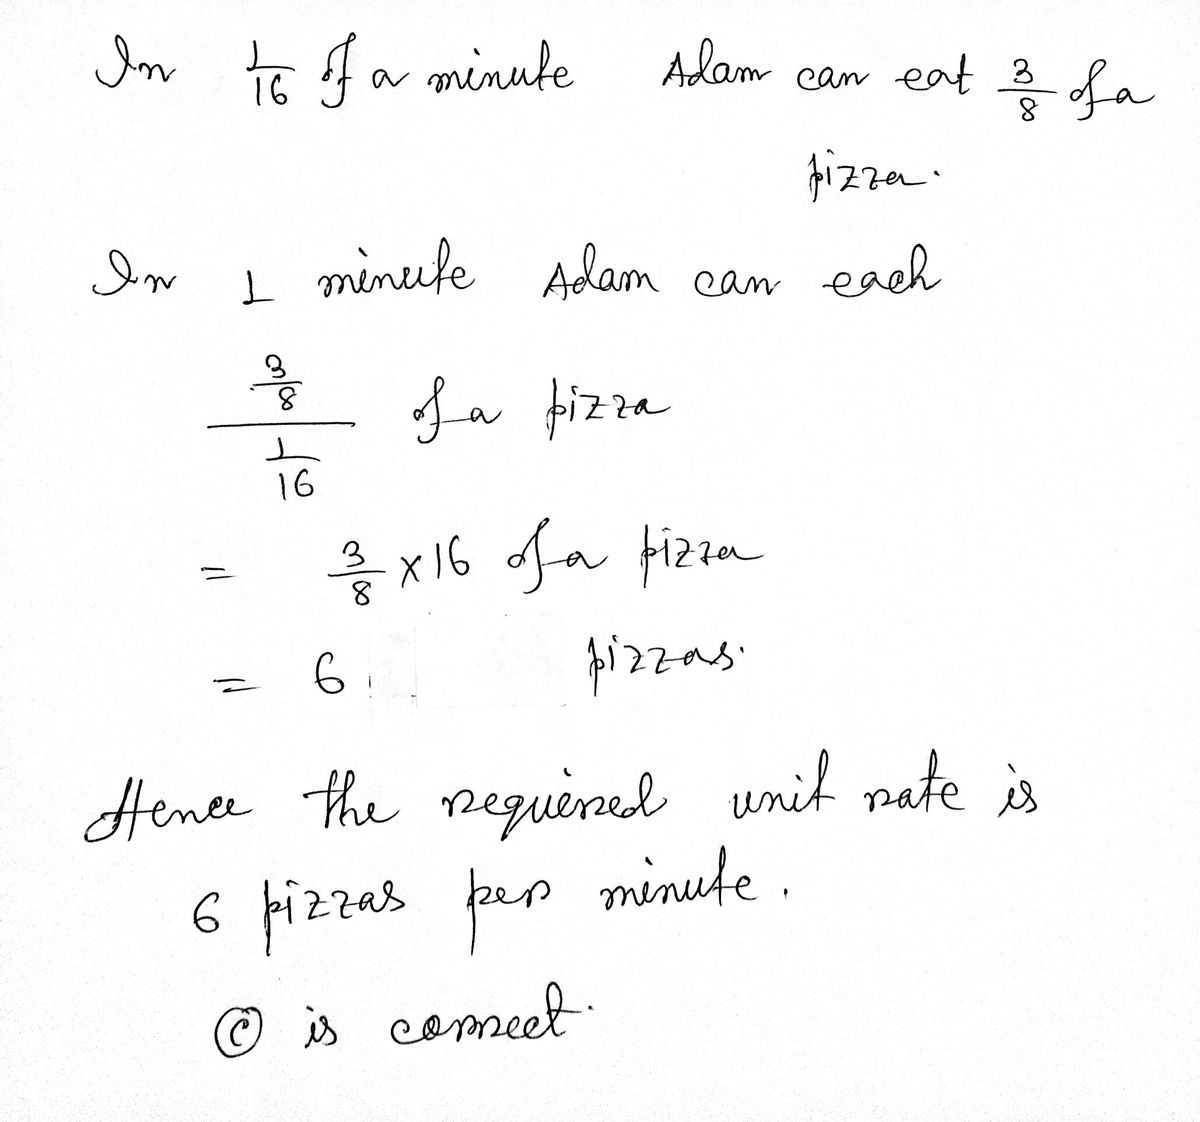 In 1/16 of a minute Adam can eat 3/8 of a
pizza.
In 1 minute Adam can each
3/8
/
1/16 of a pizza
= 3/8 × 16 of a pizza
= 6 pizzas.
Hence the required unit rate is
6 pizzas per minute.
Ⓒ is correct.